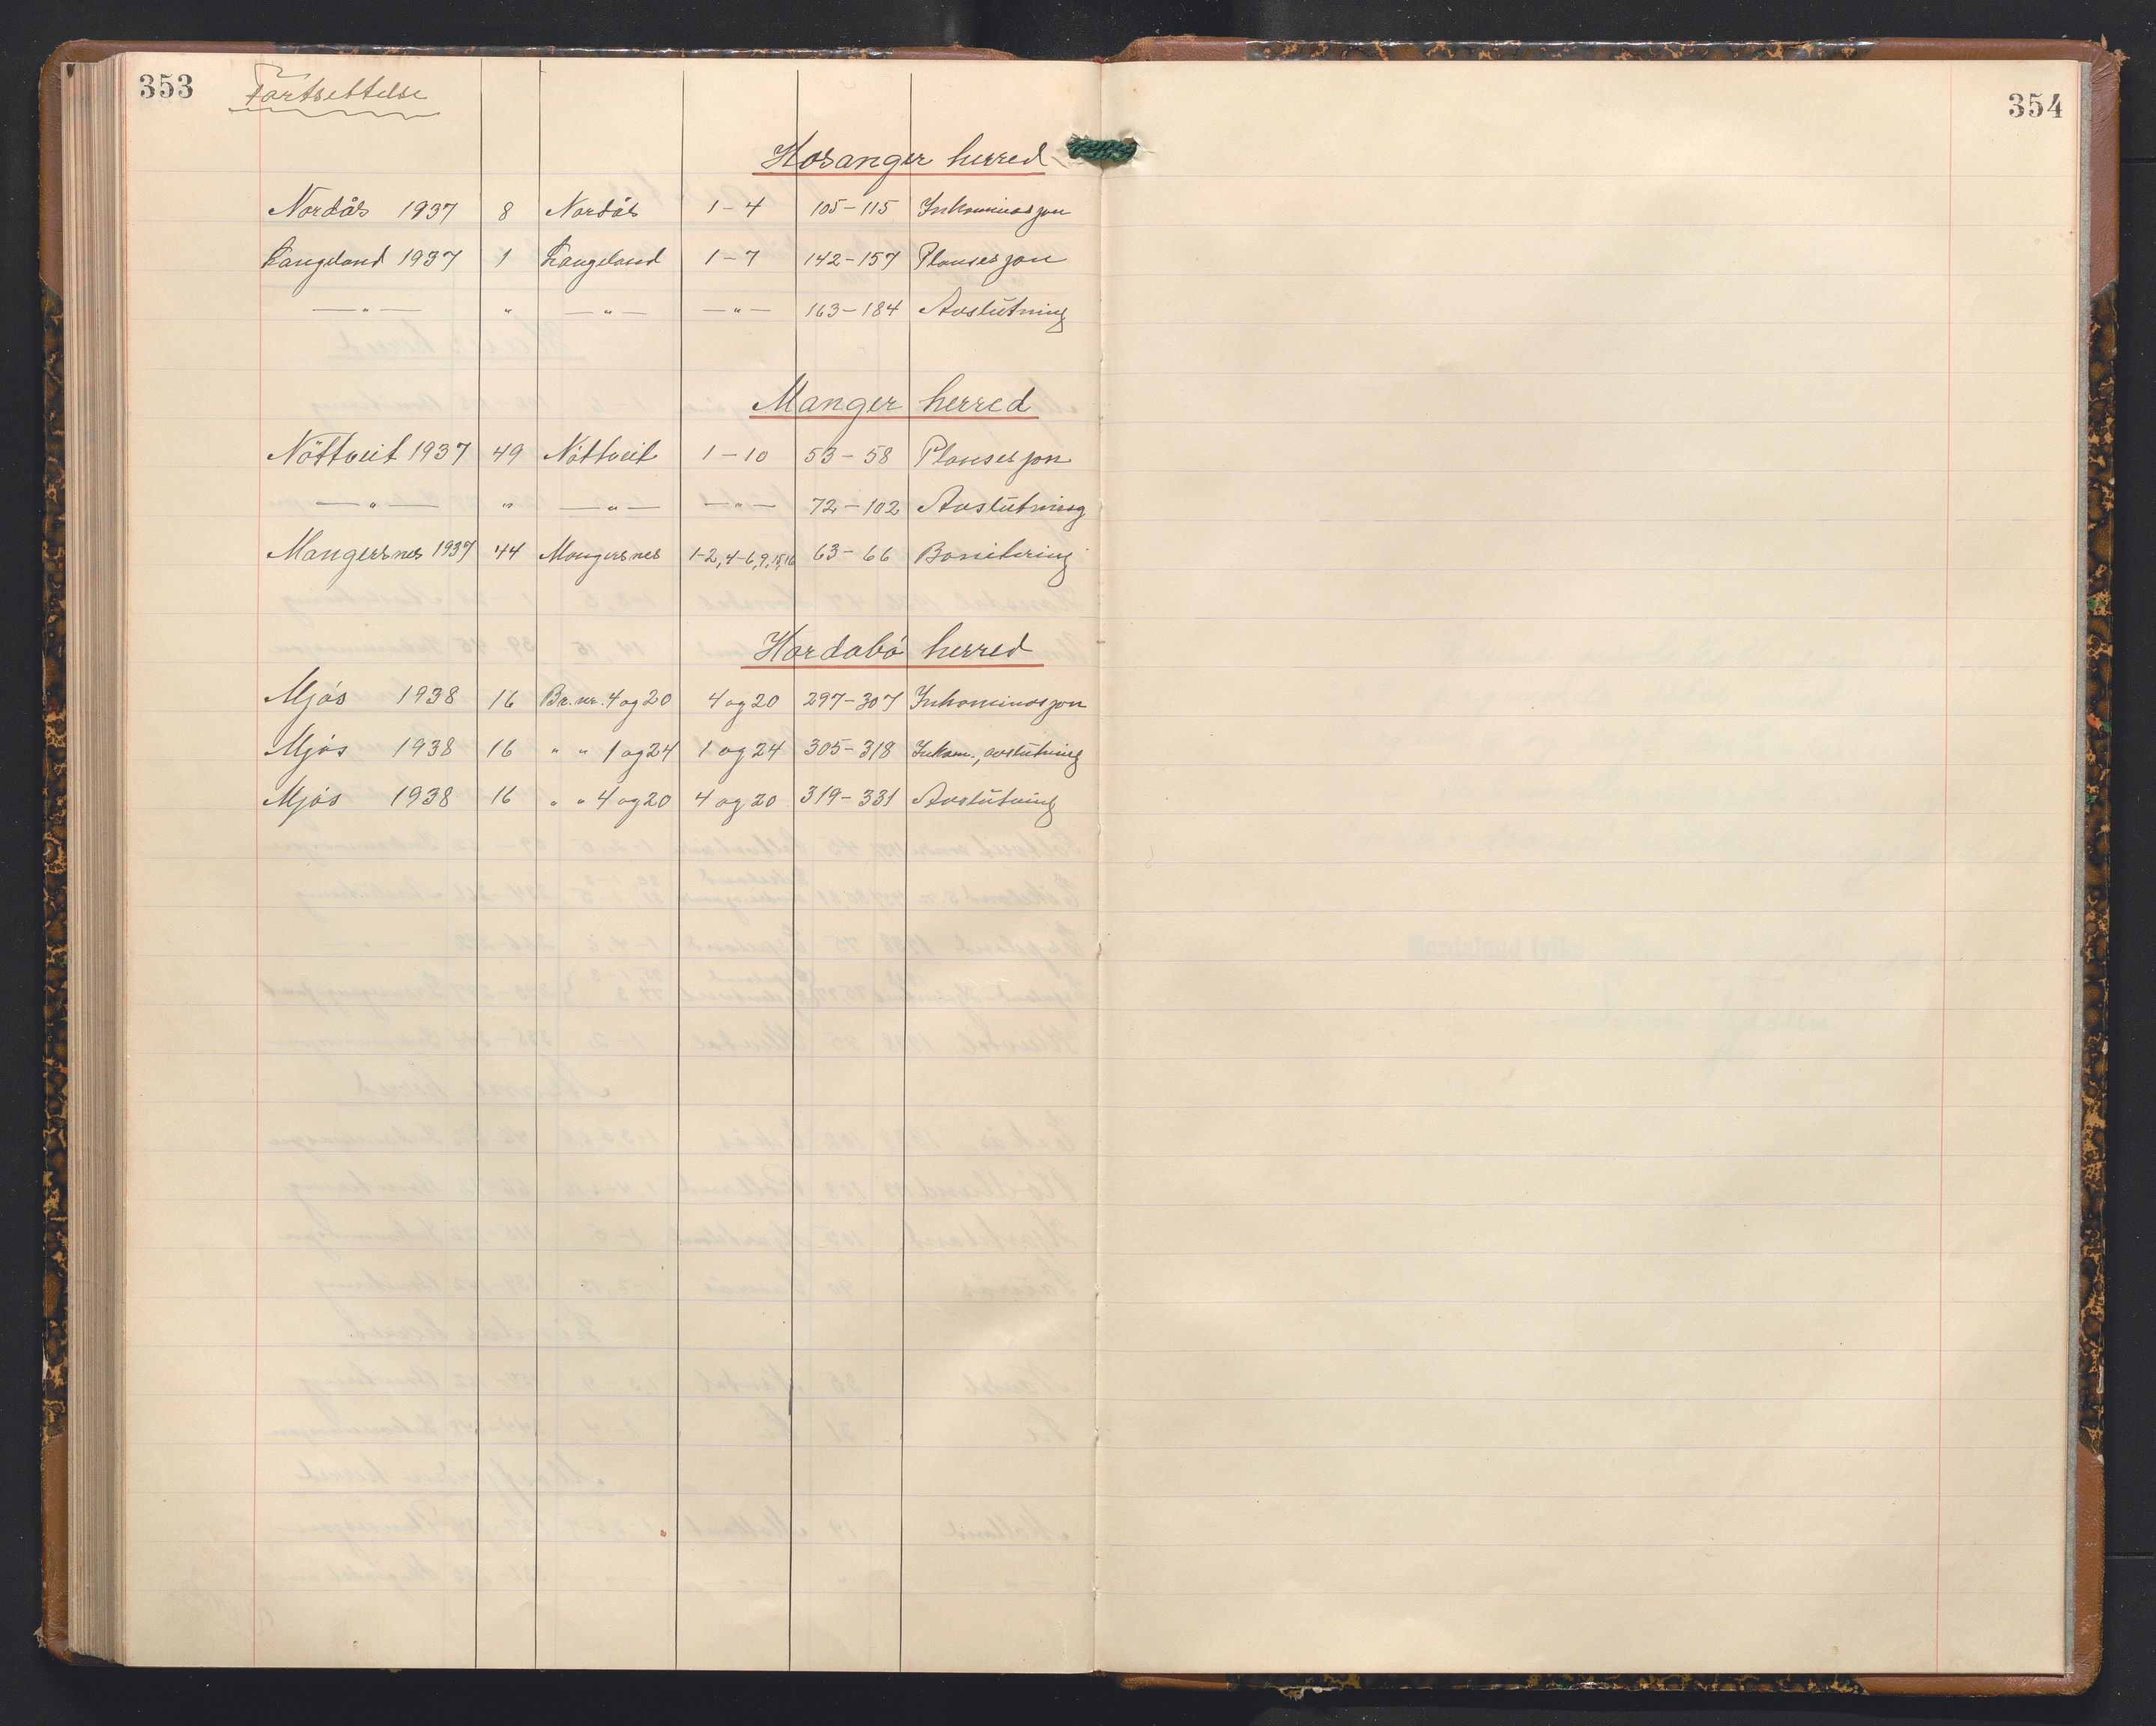 353
Fortsettelse
354
Hosanger herred
Nordås 1937 8 Nordås 1-4 105-115 Inkaminasjon
Langeland 1937 1 Langeland 1-7 142-157 Plansesjon
—〃— 〃 —〃— —〃— 163-184 Avslutning
Manger herred
Nöttveit 1937 49 Nöttveit 1-10 53-58 Plansesjon
—〃— 〃 —〃— —〃— 72-102 Avslutning
Mangersnes 1937 44 Mangersnes 1-2, 4-6, 9, 15, 16 63-66 Bonitering
Hordabö herred
Mjös 1938 16 Br. nr. 4 og 20 4 og 20 297-307 Inkaminasjon
Mjös 1938 16 〃 〃 1 og 24 1 og 24 305-318 Inkam., avslutning
Mjös 1938 16 〃 〃 4 og 20 4 og 20 319-331 Avslutning